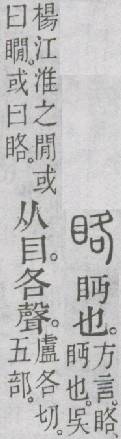 䀩 眄也。方言。䀩、眄也。吳
楊江淮之閒或曰瞯。或曰䀩。从目。各聲。盧各切。五部。